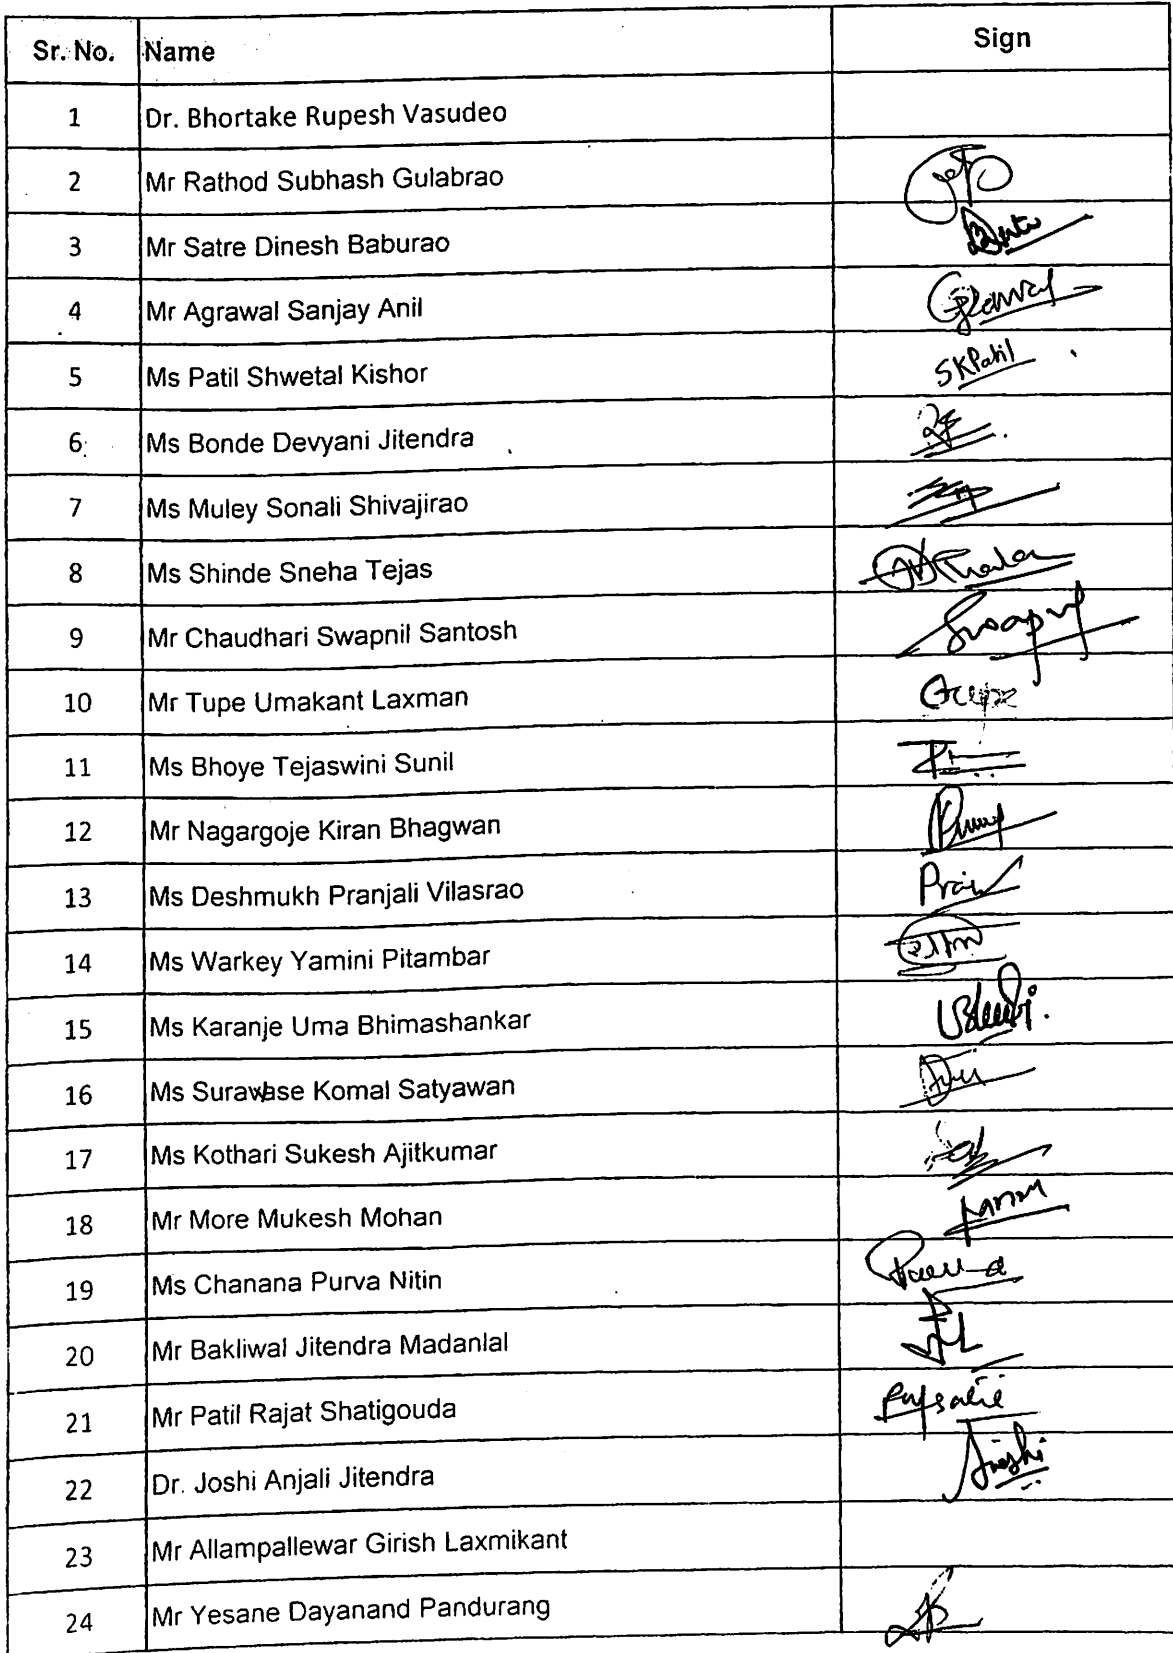 Sr. No. Name Sign
1 Dr. Bhortake Rupesh Vasudeo
2 Mr Rathod Subhash Gulabrao
3 Mr Satre Dinesh Baburao
4 Mr Agrawal Sanjay Anil
5 Ms Patil Shwetal Kishor SKPatil
6 Ms Bonde Devyani Jitendra
7 Ms Muley Sonali Shivajirao
8 Ms Shinde Sneha Tejas
9 Mr Chaudhari Swapnil Santosh Swapnil
10 Mr Tupe Umakant Laxman
11 Ms Bhoye Tejaswini Sunil
12 Mr Nagargoje Kiran Bhagwan
13 Ms Deshmukh Pranjali Vilasrao
14 Ms Warkey Yamini Pitambar
15 Ms Karanje Uma Bhimashankar
16 Ms Surawase Komal Satyawan
17 Ms Kothari Sukesh Ajitkumar
18 Mr More Mukesh Mohan
19 Ms Chanana Purva Nitin
20 Mr Bakliwal Jitendra Madanlal
21 Mr Patil Rajat Shatigouda
22 Dr. Joshi Anjali Jitendra
23 Mr Allampallewar Girish Laxmikant
24 Mr Yesane Dayanand Pandurang